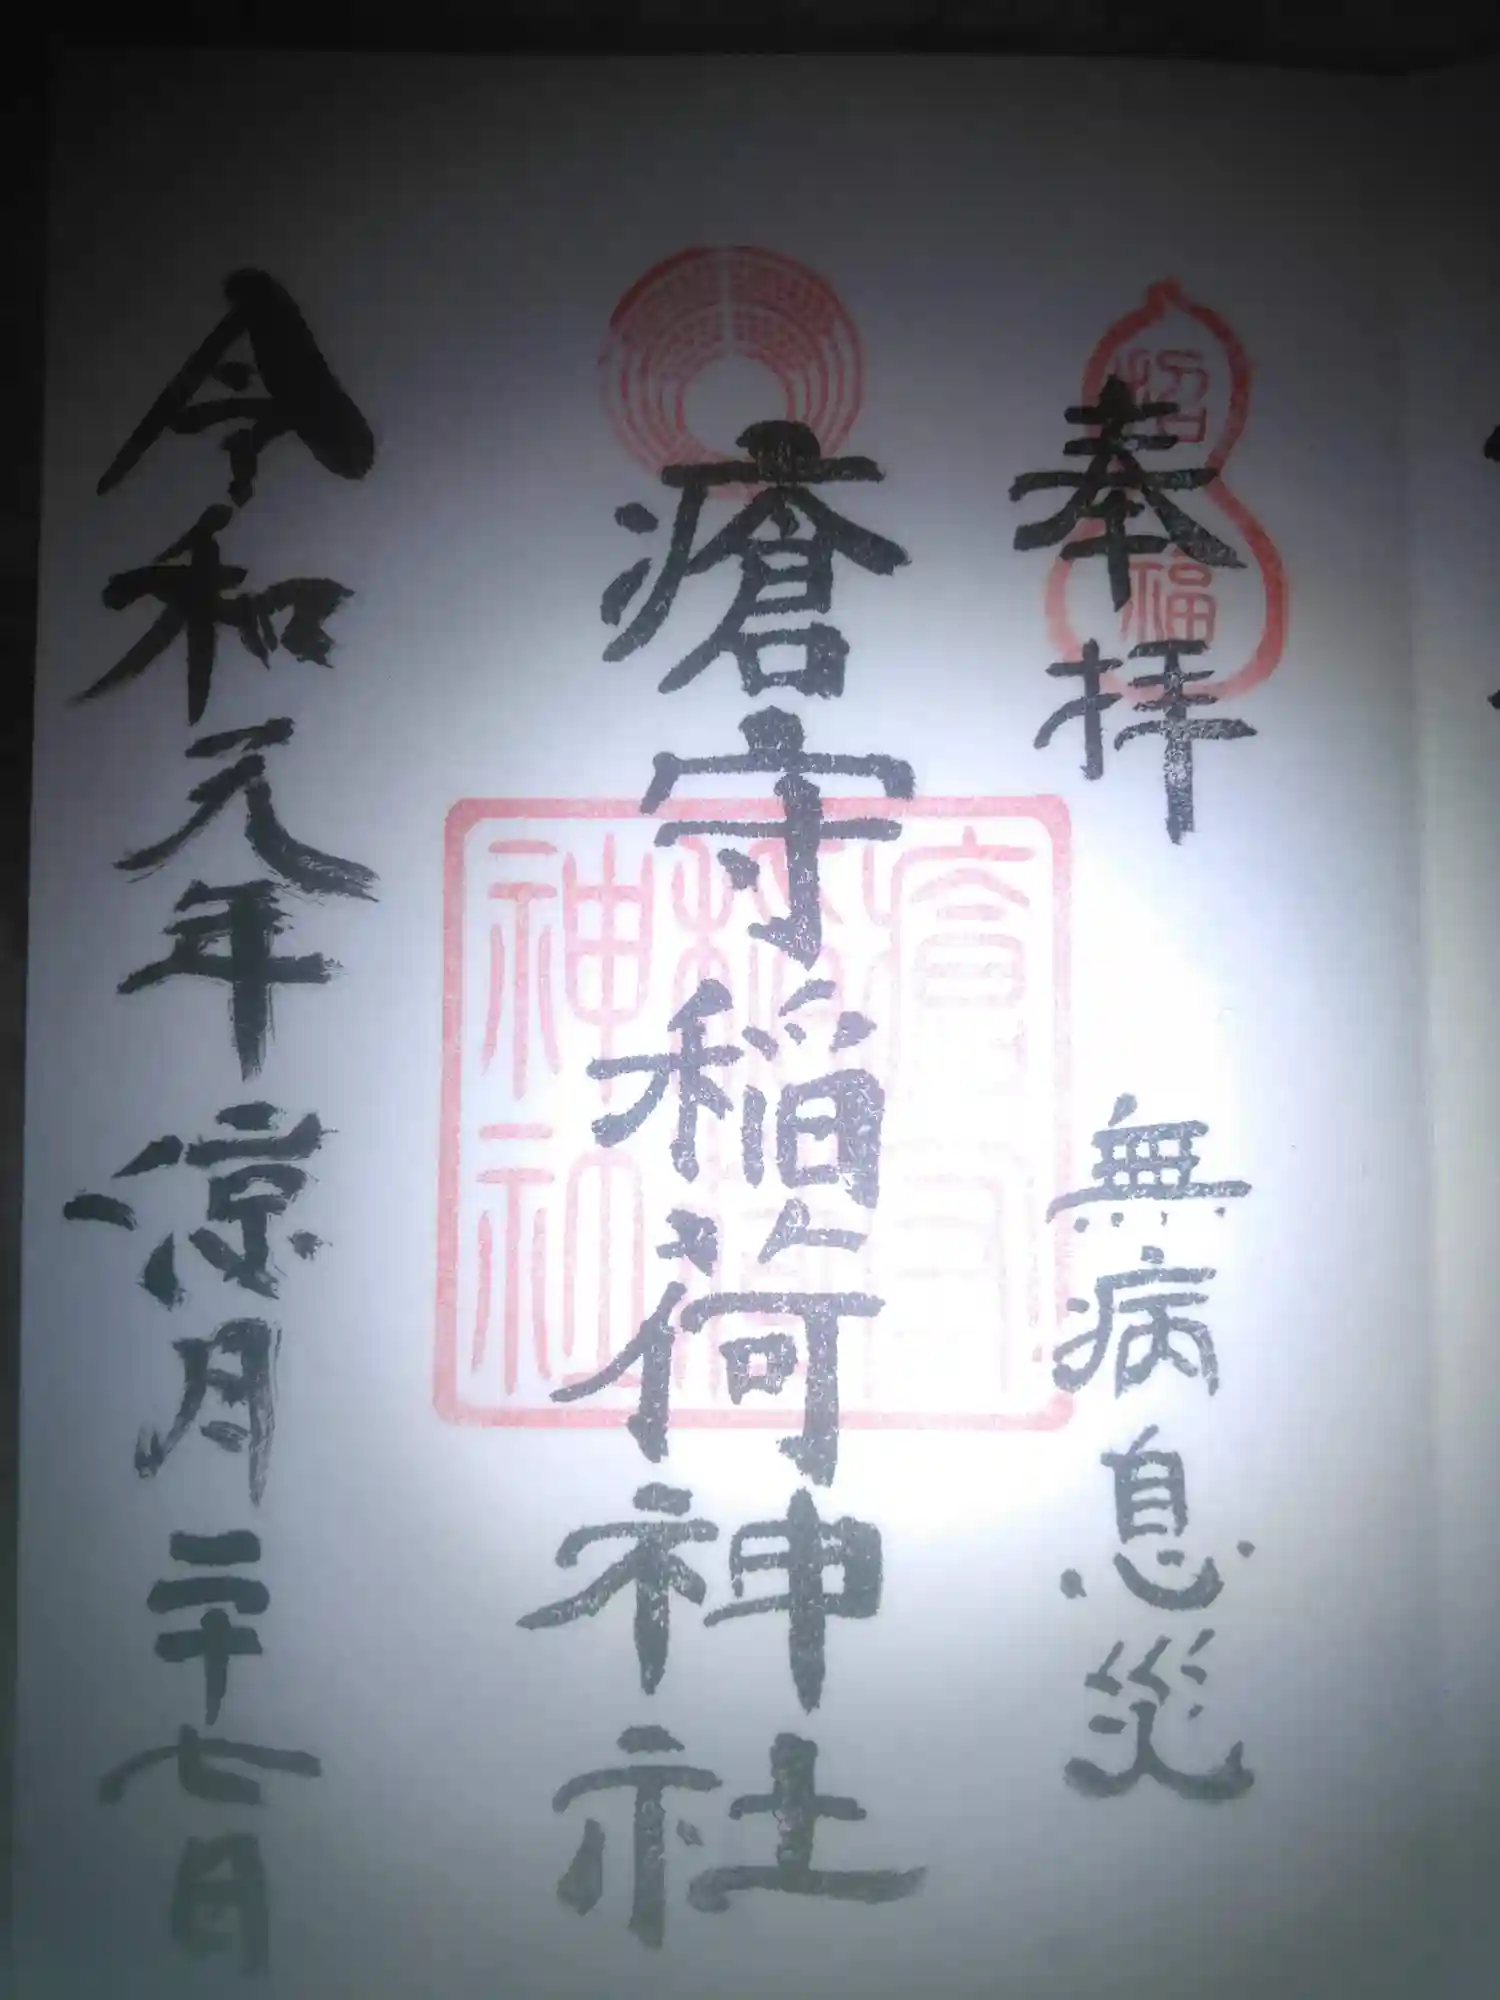 奉拝 無病息災
招福
瘡守稲荷神社
瘡守稲荷神社
令和元年涼月二十七日